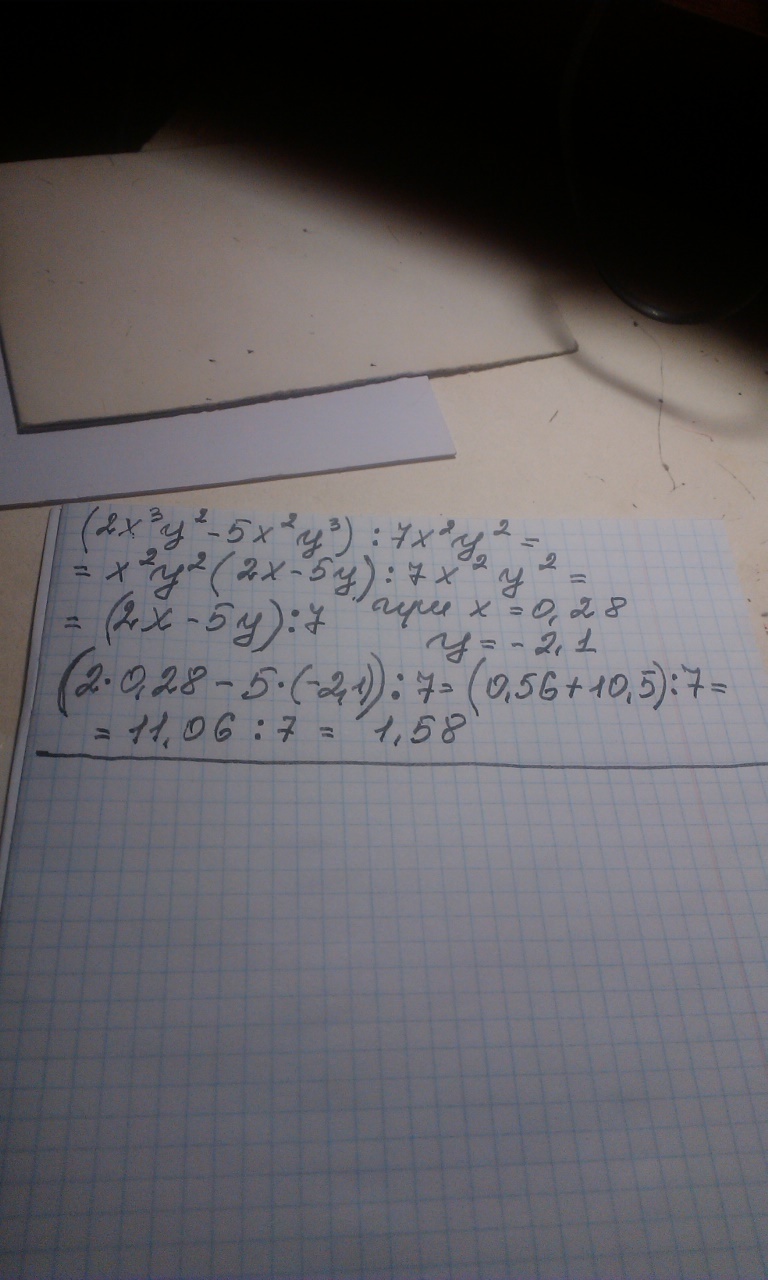 (2x³y²-5x²y³):7x²y²=
=x²y²(2x-5y):7x²y²=
=(2x-5y):7 при x=0,28
y=-2,1
(2·0,28-5·(-2,1)):7=(0,56+10,5):7=
=11,06:7= 1,58